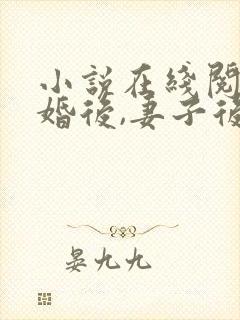 小説在綫閱
婚後,妻子後
晏九九